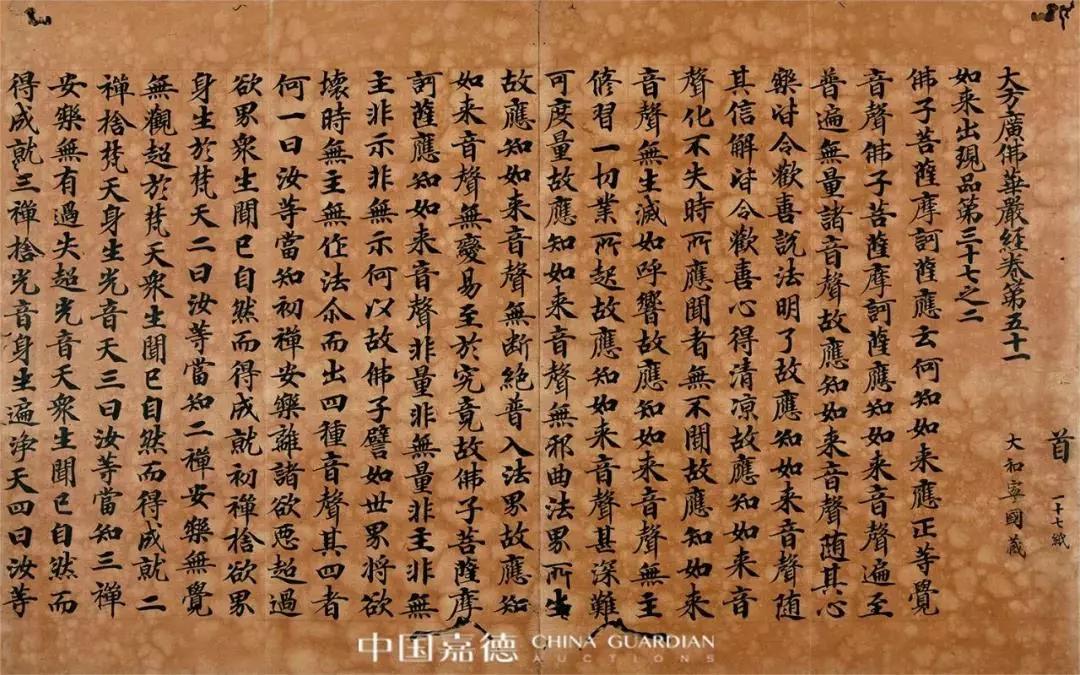 首
一十七紙
大和寧國藏
大方廣佛華嚴経卷第五十一
如来出現品第三十七之二
佛子菩薩摩訶薩應云何知如来應正等覺
音聲佛子菩薩摩訶薩應知如来音聲遍至
普遍無量諸音聲故應知如来音聲随其心
樂皆令歡喜說法明了故應知如来音聲随
其信解皆令歡喜心得清涼故應知如来音
聲化不失時所應聞者無不聞故應知如来
音聲無生滅如呼響故應知如来音聲無主
修習一切業所起故應知如来音聲甚深難
可度量故應知如来音聲無邪曲法界所生
故應知如来音聲無断絕普入法界故應知
如来音聲無變易至於究竟故佛子菩薩摩
訶薩應知如来音聲非量非無量非主非無
主非示非無示何以故佛子譬如世界将欲
壞時無主無作法尒而出四種音聲其四者
何一曰汝等當知初禪安樂離諸欲惡超過
欲界衆生聞已自然而得成就初禪捨欲界
身生於梵天二曰汝等當知二禪安樂無覺
無觀超於梵天衆生聞已自然而得成就二
禪捨梵天身生光音天三曰汝等當知三禪
安樂無有過失超光音天衆生聞已自然而
得成就三禪捨光音身生遍淨天四曰汝等
中国嘉德 CHINA GUARDIAN
AUCTIONS